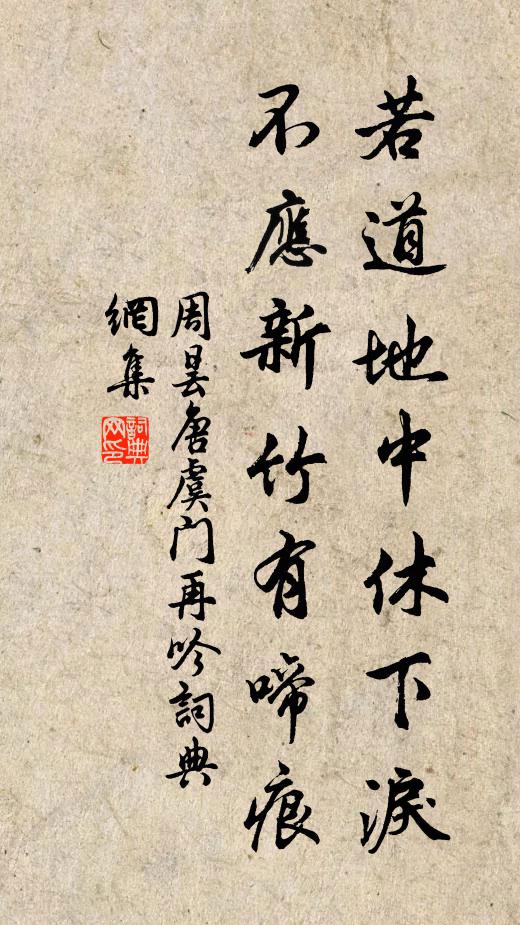 若道地中休下淚
不應新竹有啼痕
周曇唐虞門再吟詞典
網集
詞典網印